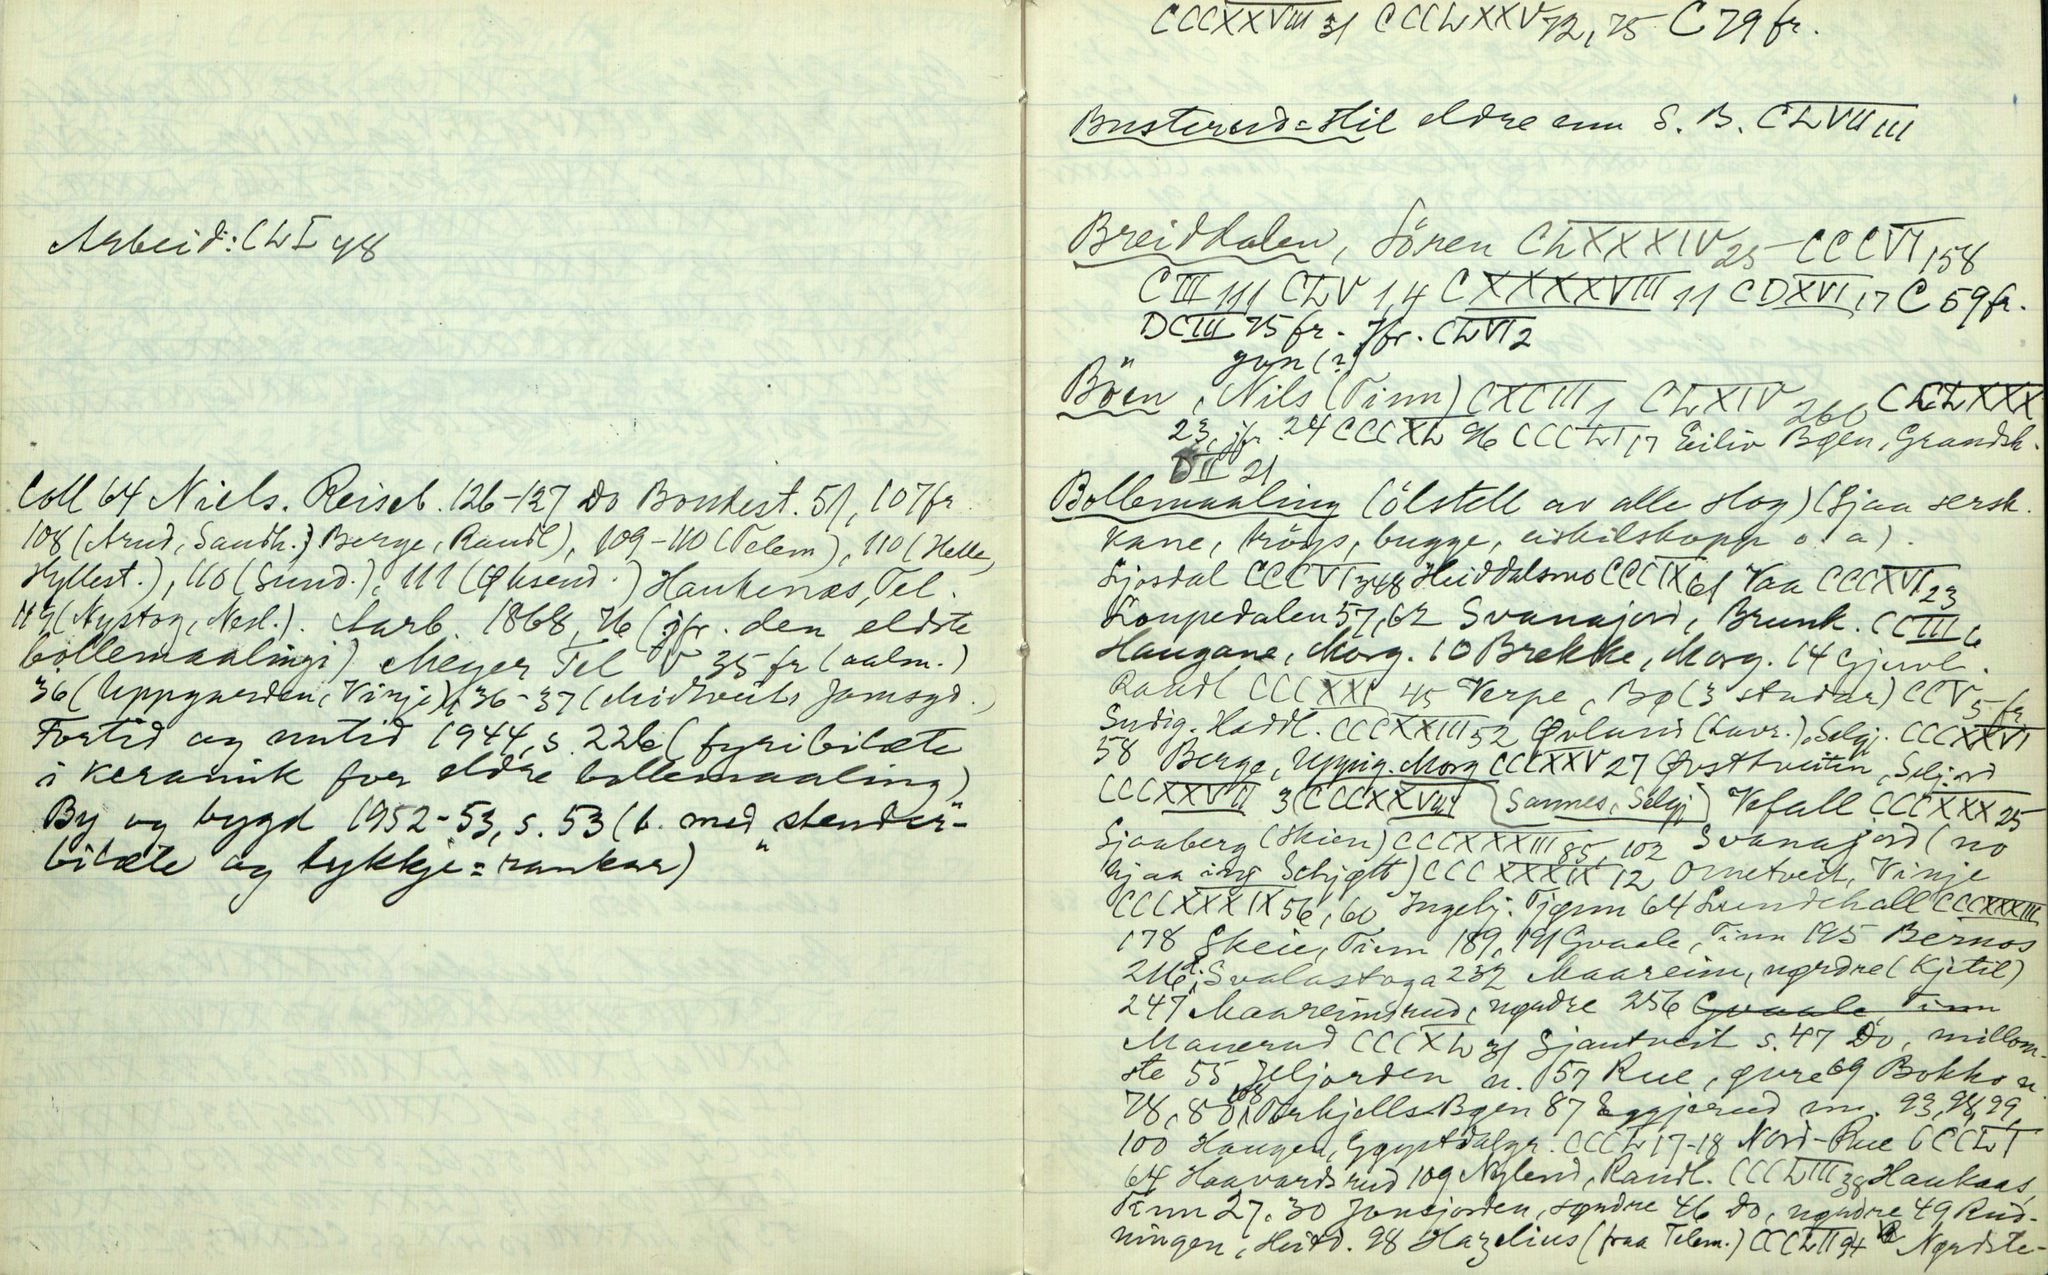 Arbeid: CLI 48
Coll 64 Niels. Reiseb. 126-127 Do Bondest. 51, 107 fr
108 (Arud, Sandh.) Berge, Raul), 109-110 (Telem), 110 (Helle,
Hyllest.), 110 (Sund.), 111 (Øksend.) Haukenæs, Tel.
119 (Nystog, Nesl.). Aarb. 1868, 76 (jfr. den eldste
bollemaalingi) Meyer Tel V 35 fr (aalm.)
36 (Uppgarden, Vinje), 36-37 (Midtveits Jamsgd.)
Fortid og nutid 1944, s. 226 (fyribilæte
i keramik for eldre bollemaaling)
By og bygd 1952-53, s. 53 (b. med "stender-
bilæte og lykkje=rankar)"
CCCXXVIII 31 CCCLXXV 72, 75 C 79 fr.
Busterud=stil eldre enn S. B. CLVII III
Breiddalen, Sören CLXXXIV 25 - CCCVI 158
CIII 111 CLV 1,4 CXXXXVIII 11 CDXVI 17 C 59 fr.
DCIII 75 fr. jfr. CLVI 2
" Jon (?)
Böen, Nils (Tinn) CXCIII 1 CLXIV 260 CCLXXX
23, jfr. 24 CCCXL 96 CCCLI 17 Eiliv Bøen, Grandsh.
DII 21
Bollemaaling (ölstell av alle slog) (Sjaa sersk.
kane, tröys, bugge, eiskilskopp o. a).
Ljosdal CCCVI 348 Heiddalsmo CCCIX 61 Vaa CCCXVI 23
Loupedalen 57, 62 Svanajord, Brunk. CCIII 6
Haugane, Morg. 10 Brekke, Morg. 14 Gjuvl.
Raudl CCCXXI 45 Verpe, Bø (3 studar) CCV 5 fr
Sudig. Haddl. CCCXXIII 52 Øvland (Lavr.), Selj. CCCXXVI
58 Berge, Uppig. Morg CCCXXV 27 Øvsthveitin, Seljord
CCCXXVII 3 (CCCXXVIII (Sannes, Selj) Vefall CCCXXX 25
Sjaaberg (Skien) CCCXXXIII 85, 102 Svanajord (no
hjaa ing Schjøtt) CCCXXXIX 12 Ornetveit, Vinje
CCCXXXIX 56, 60 Ingebj. Tjønn 64 Lundehall CCCXXXIII
178 Skeie, Tinn 189, 191 Gvaale, Tinn 195 Bernos
216 Svalastoga 232 Maareim, nørdre (Kjetil)
247 Maareimsrud, nørdre 256 Gvaale, Tinn
Manerud CCCXL 31 Sjautveit s. 47 Do, millom-
ste 55 Jeljorden n. 57 Rue, øvre 69 Bokko n.
78, 80, 108 Torkjells-Bøen 87 Eggjerud m. 93, 98, 99,
100 Haugen, Gøystdalgr. CCCL 17-18 Nord-Rue CCCLI
64 Haavardsrud 109 Nylend, Raudl. CCCLIII 38 Haukaas,
Tinn 27. 30 Jonsjorden, søndre 46 Do, nørdre 49 Rud-
ningen, Heitd. 98 Hazelius (fraa Telem.) CCCLII 94 Nørdste-